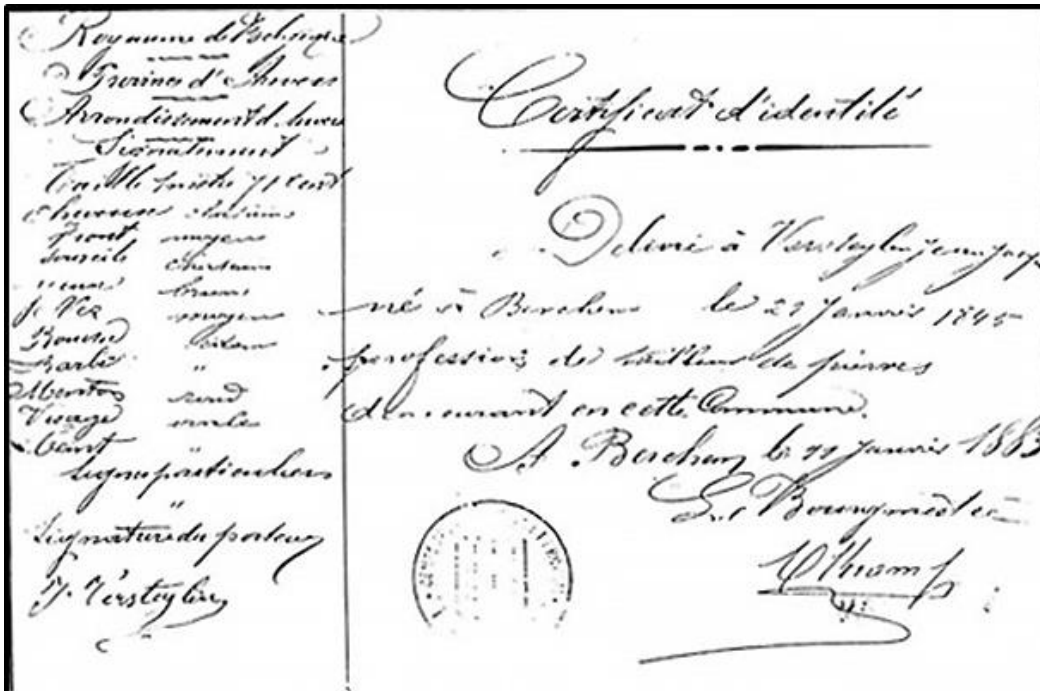 Royaume de Belgique
Province d'Anvers
Arrondissement d'Anvers
Signalement
Taille 1 mètre 71 cent
Cheveux chatains
Front moyen
Sourcils chatains
yeux bruns
Nez moyen
Bouche
Barbe "
Menton rond
Visage ovale
Teint "
Signes particuliers
"
Signature du porteur
J. Versteylen
Certificat d'identité
Délivré à Versteylen Jean Jacq
né à Berchem le 29 Janvier 1845
profession de tailleur de pierres
demeurant en cette Commune.
A Berchem le Janvier 1883
Le Bourgmestre